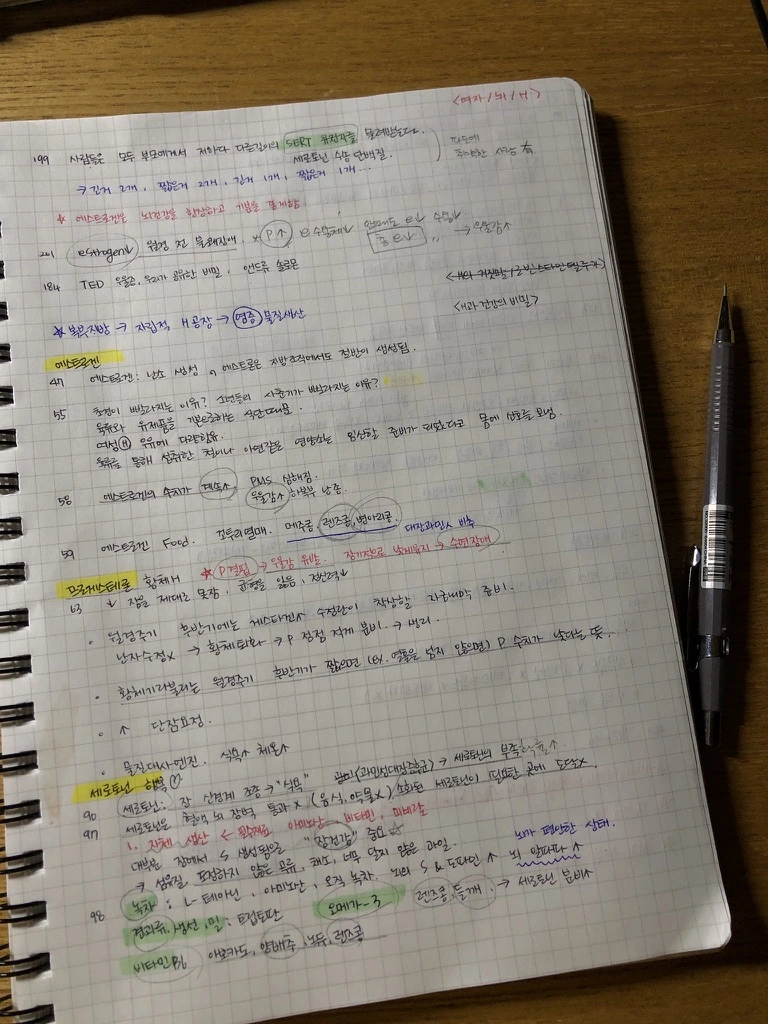 <여자 / 뇌 / H>
199 사람들은 모두 부모에게서 저마다 다른길이의 SERT 유전자를 물려받는다.
세로토닌 수송 단백질.
→ 긴거 2개, 짧은거 2개, 긴거 1개, 짧은거 1개...
* 에스트로겐은 뇌건강을 향상하고 기분을 좋게함
201 estrogen↓ 월경 전 불쾌장애. × P↑
→ 우울감↑
184 TED 우울증, 우리가 공유한 비밀, 앤드류 솔로몬
<H과 건강의 비밀>
* 복부지방 → 자립적 H공장 → 염증 물질생산
에스트로겐
47 에스트로겐: 난소 생성, 에스트론은 지방조직에서도 절반이 생성됨.
55 초경이 빨라지는 이유? 소년들의 사춘기가 빨라지는 이유?
육류와 유제품을 기본으로하는 식단때문.
여성 H 우유에 다량함유.
육류를 통해 섭취한 철이나 아연같은 영양소는 임신할 준비가 되었다고 몸에 신호를 보냄.
58 에스트로겐의 수치가 계속↑ PMS 심해짐.
우울감↑ 하복부 낭종.
59 에스트로겐 Food. 꼬투리열매. 메주콩, 렌즈콩, 병아리콩.
프로게스테론 황체H * P결핍 → 우울감 유발. 장기적으로 낮게유지 → 수면장애
63 ↓ 잠을 제대로 못잠, 균형을 잃음,
· 월경주기 후반기에는 게스타겐↑ 수정란이 착상할 자궁내막 준비.
난자수정× → 황체퇴화 → P 점점 적게 분비. → 생리.
· 황체기라불리는 월경주기 후반기가 짧으면 (ex. 열흘을 넘지 않으면) P 수치가 낮다는 뜻.
· ↑ 단잠요정.
· 물질대사엔진. 식욕↑ 체온↑
세로토닌 행복
90 세로토닌: 장 신경계 조종 → "식욕" (과민성대장증후군) → 세로토닌의 부족
97 세로토닌은 혈액 뇌 장벽 통과× (음식, 약물×) 소화된 세로토닌이 필요한 곳에 도달×
1. 자체 생산 ← 원재료 아미노산, 비타민, 미네랄
대부분 장에서 S 생성됨으로 "장건강" 중요 ☆
→ 섬유질, 도정하지 않은 곡류, 채소, 너무 달지 않은 과일.
뇌가 편안한 상태.
98 녹차: L-테아닌, 아미노산, 오직 녹차. 뇌의 S & 도파민↑ 뇌 알파파↑
견과류, 생선, 밀: 트립토판 오메가-3 렌즈콩, 들깨. → 세로토닌 분비↑
비타민B6 아보카도, 양배추, 녹두, 렌즈콩